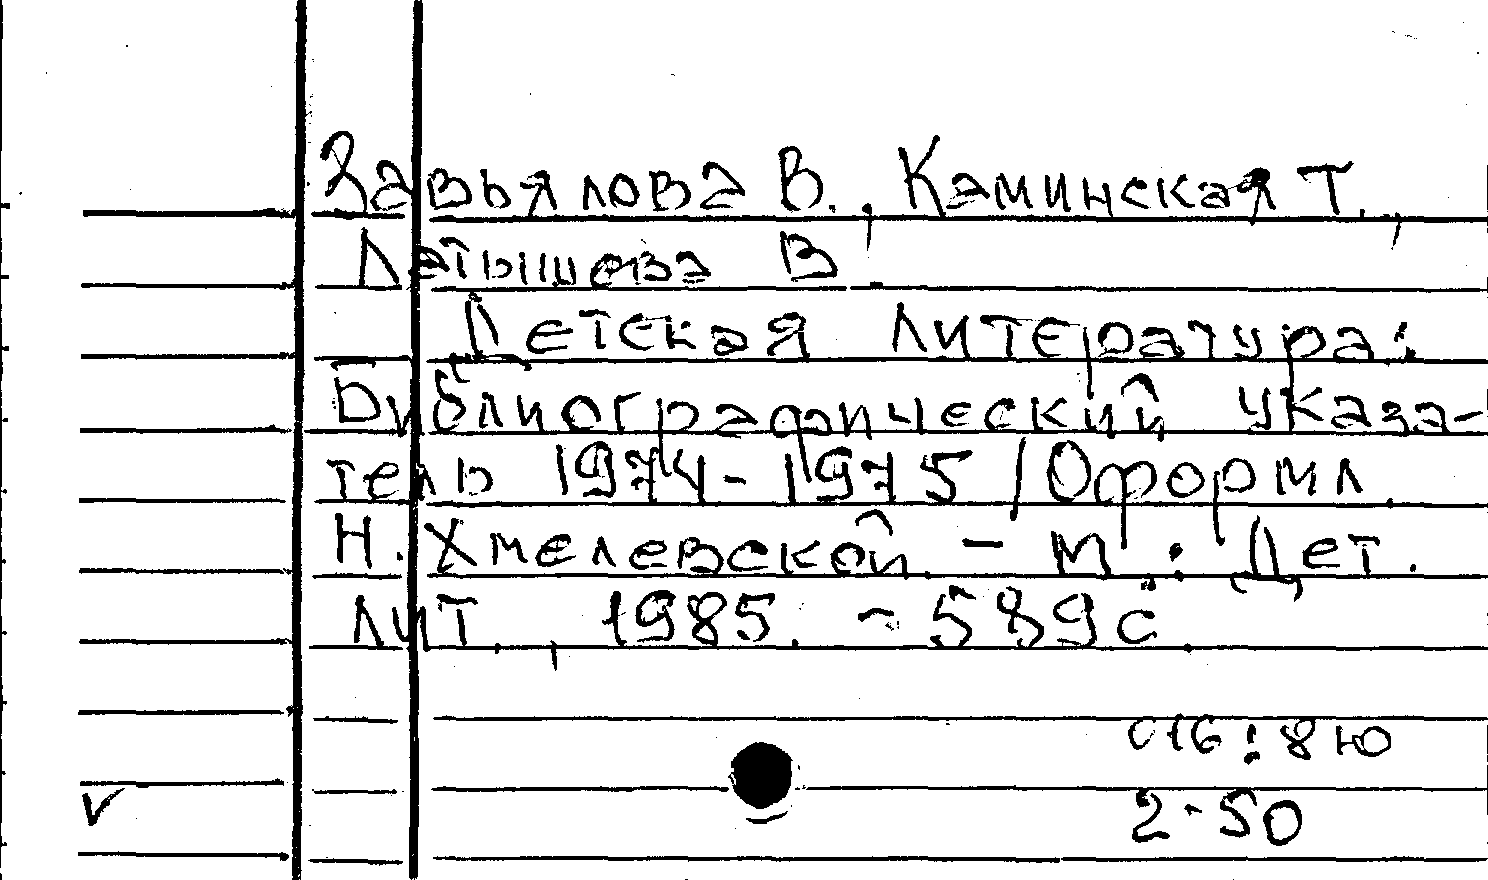 Завьялова В., Каминская Т.,
Латышева В.
Детская литература:
Библиографический указа-
тель 1974-1975 / Оформл.
Н. Хмелевской. - М.: Дет.
лит., 1985. - 589 с.
016:8Ю
2-50